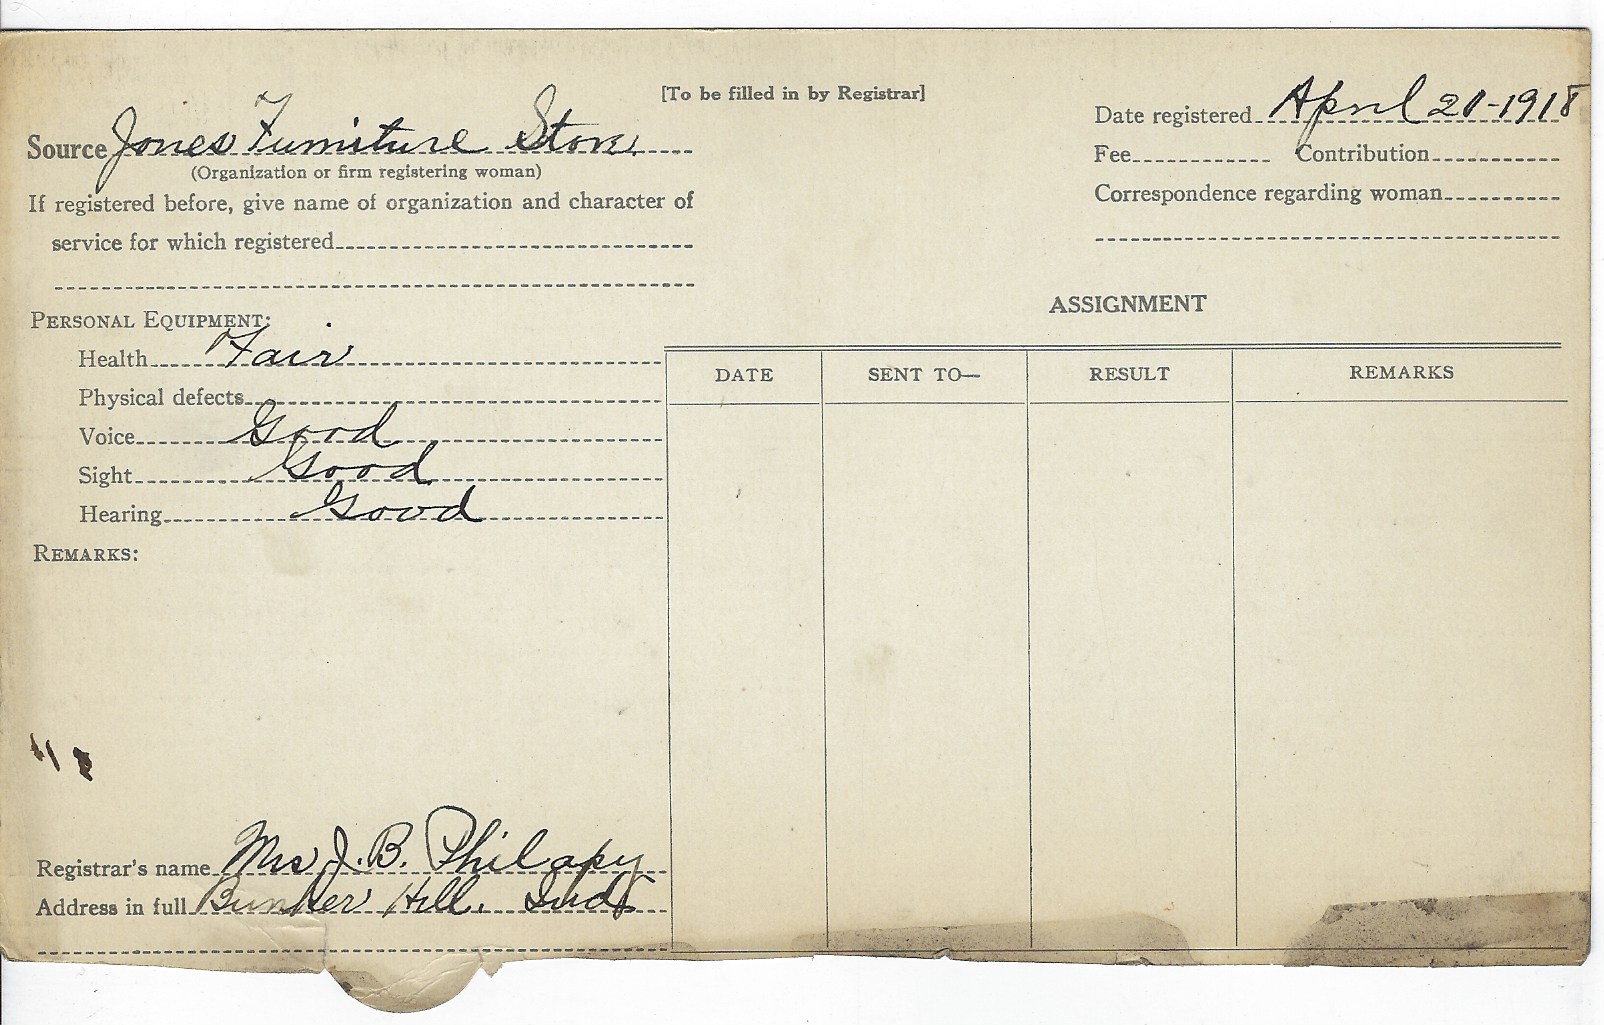 [To be filled in by Registrar]
Source Jones Furniture Store
(Organization or firm registering woman)
If registered before, give name of organization and character of
service for which registered
Date registered April 20-1918
Fee Contribution
Correspondence regarding woman
PERSONAL EQUIPMENT:
Health Fair
Physical defects
Voice Good
Sight Good
Hearing Good
REMARKS:
ASSIGNMENT
DATE SENT TO— RESULT REMARKS
Registrar's name Mrs J. B. Philapy
Address in full Bunker Hill. Ind